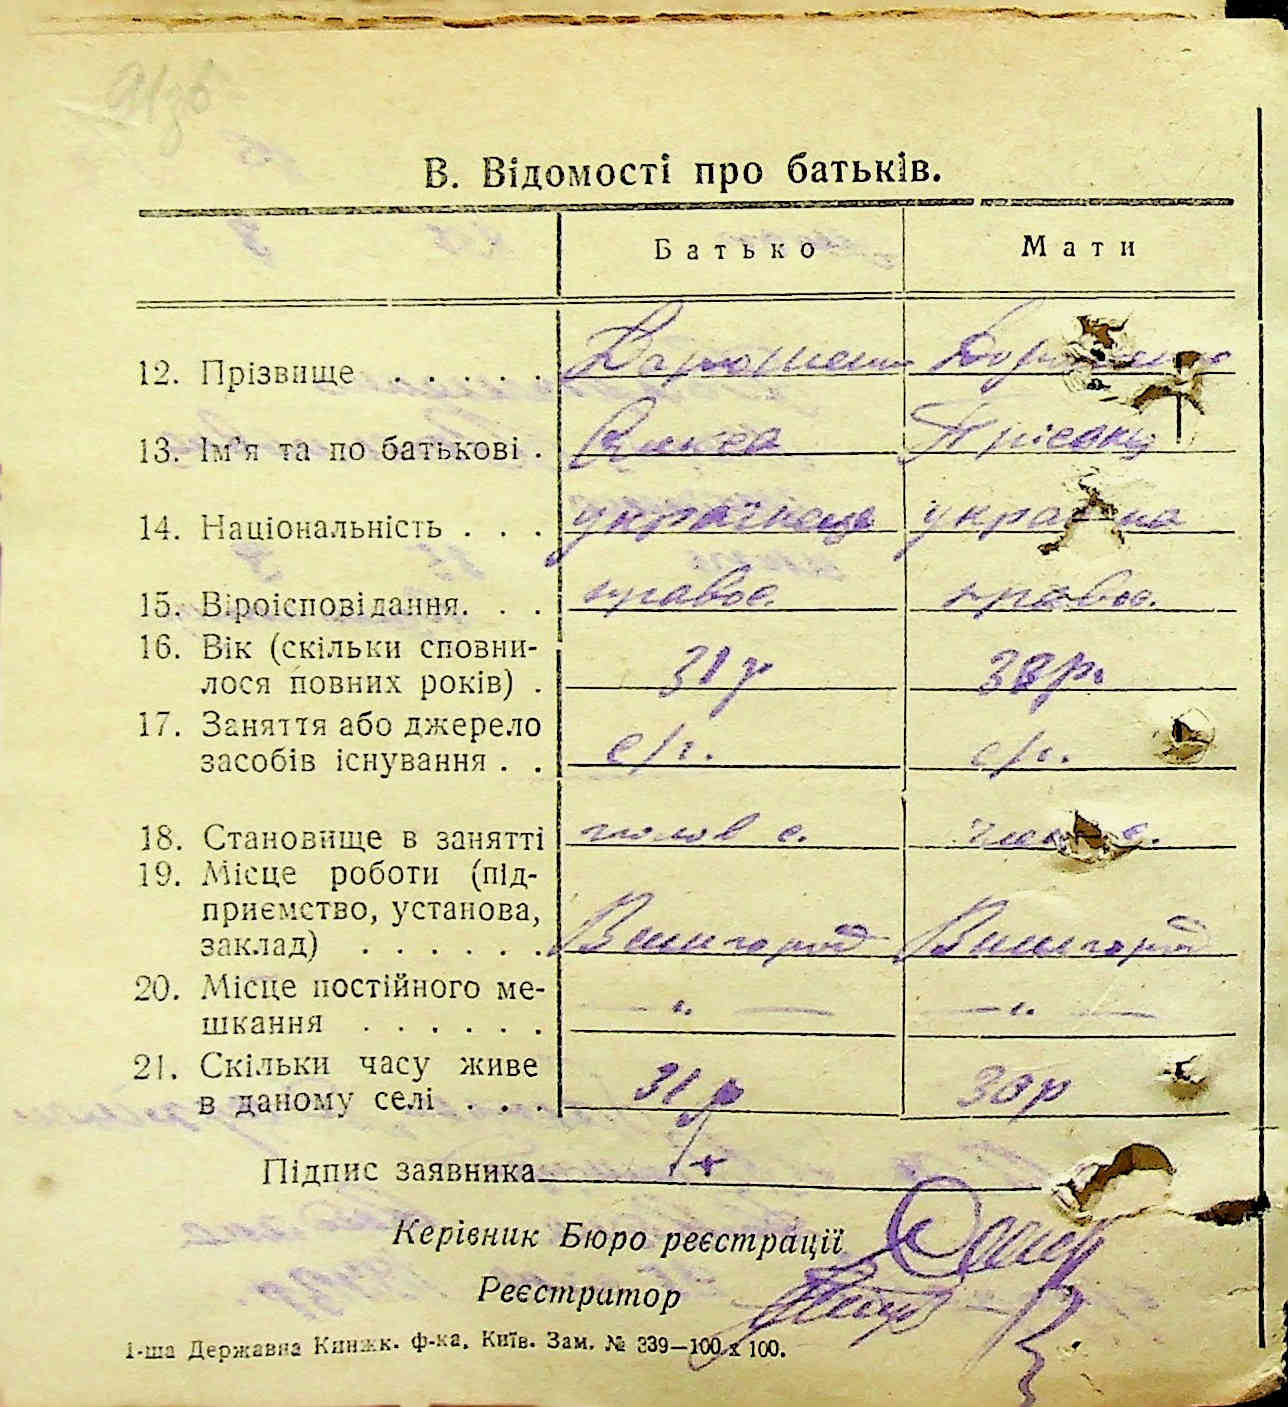 В. Відомості про батьків.
Батько Мати
12. Прізвище . . . . .
13. Ім'я та по батькові . Олекса
14. Національність . . . українець
15. Віроісповідання. . . правос. правос.
16. Вік (скільки сповни-
лося повних років) . 31 р 38 р.
17. Заняття або джерело
засобів існування . . с/г. с/г.
18. Становище в занятті
19. Місце роботи (під-
приємство, установа,
заклад) . . . . . . Вишгород Вишгород
20. Місце постійного ме-
шкання . . . . . . — „ — — „ —
21. Скільки часу живе
в даному селі . . . 31 р 30 р
Підпис заявника +
Керівник Бюро реєстрації
Реєстратор
1-ша Державна Книжк. ф-ка, Київ. Зам. № 339—100 х 100.